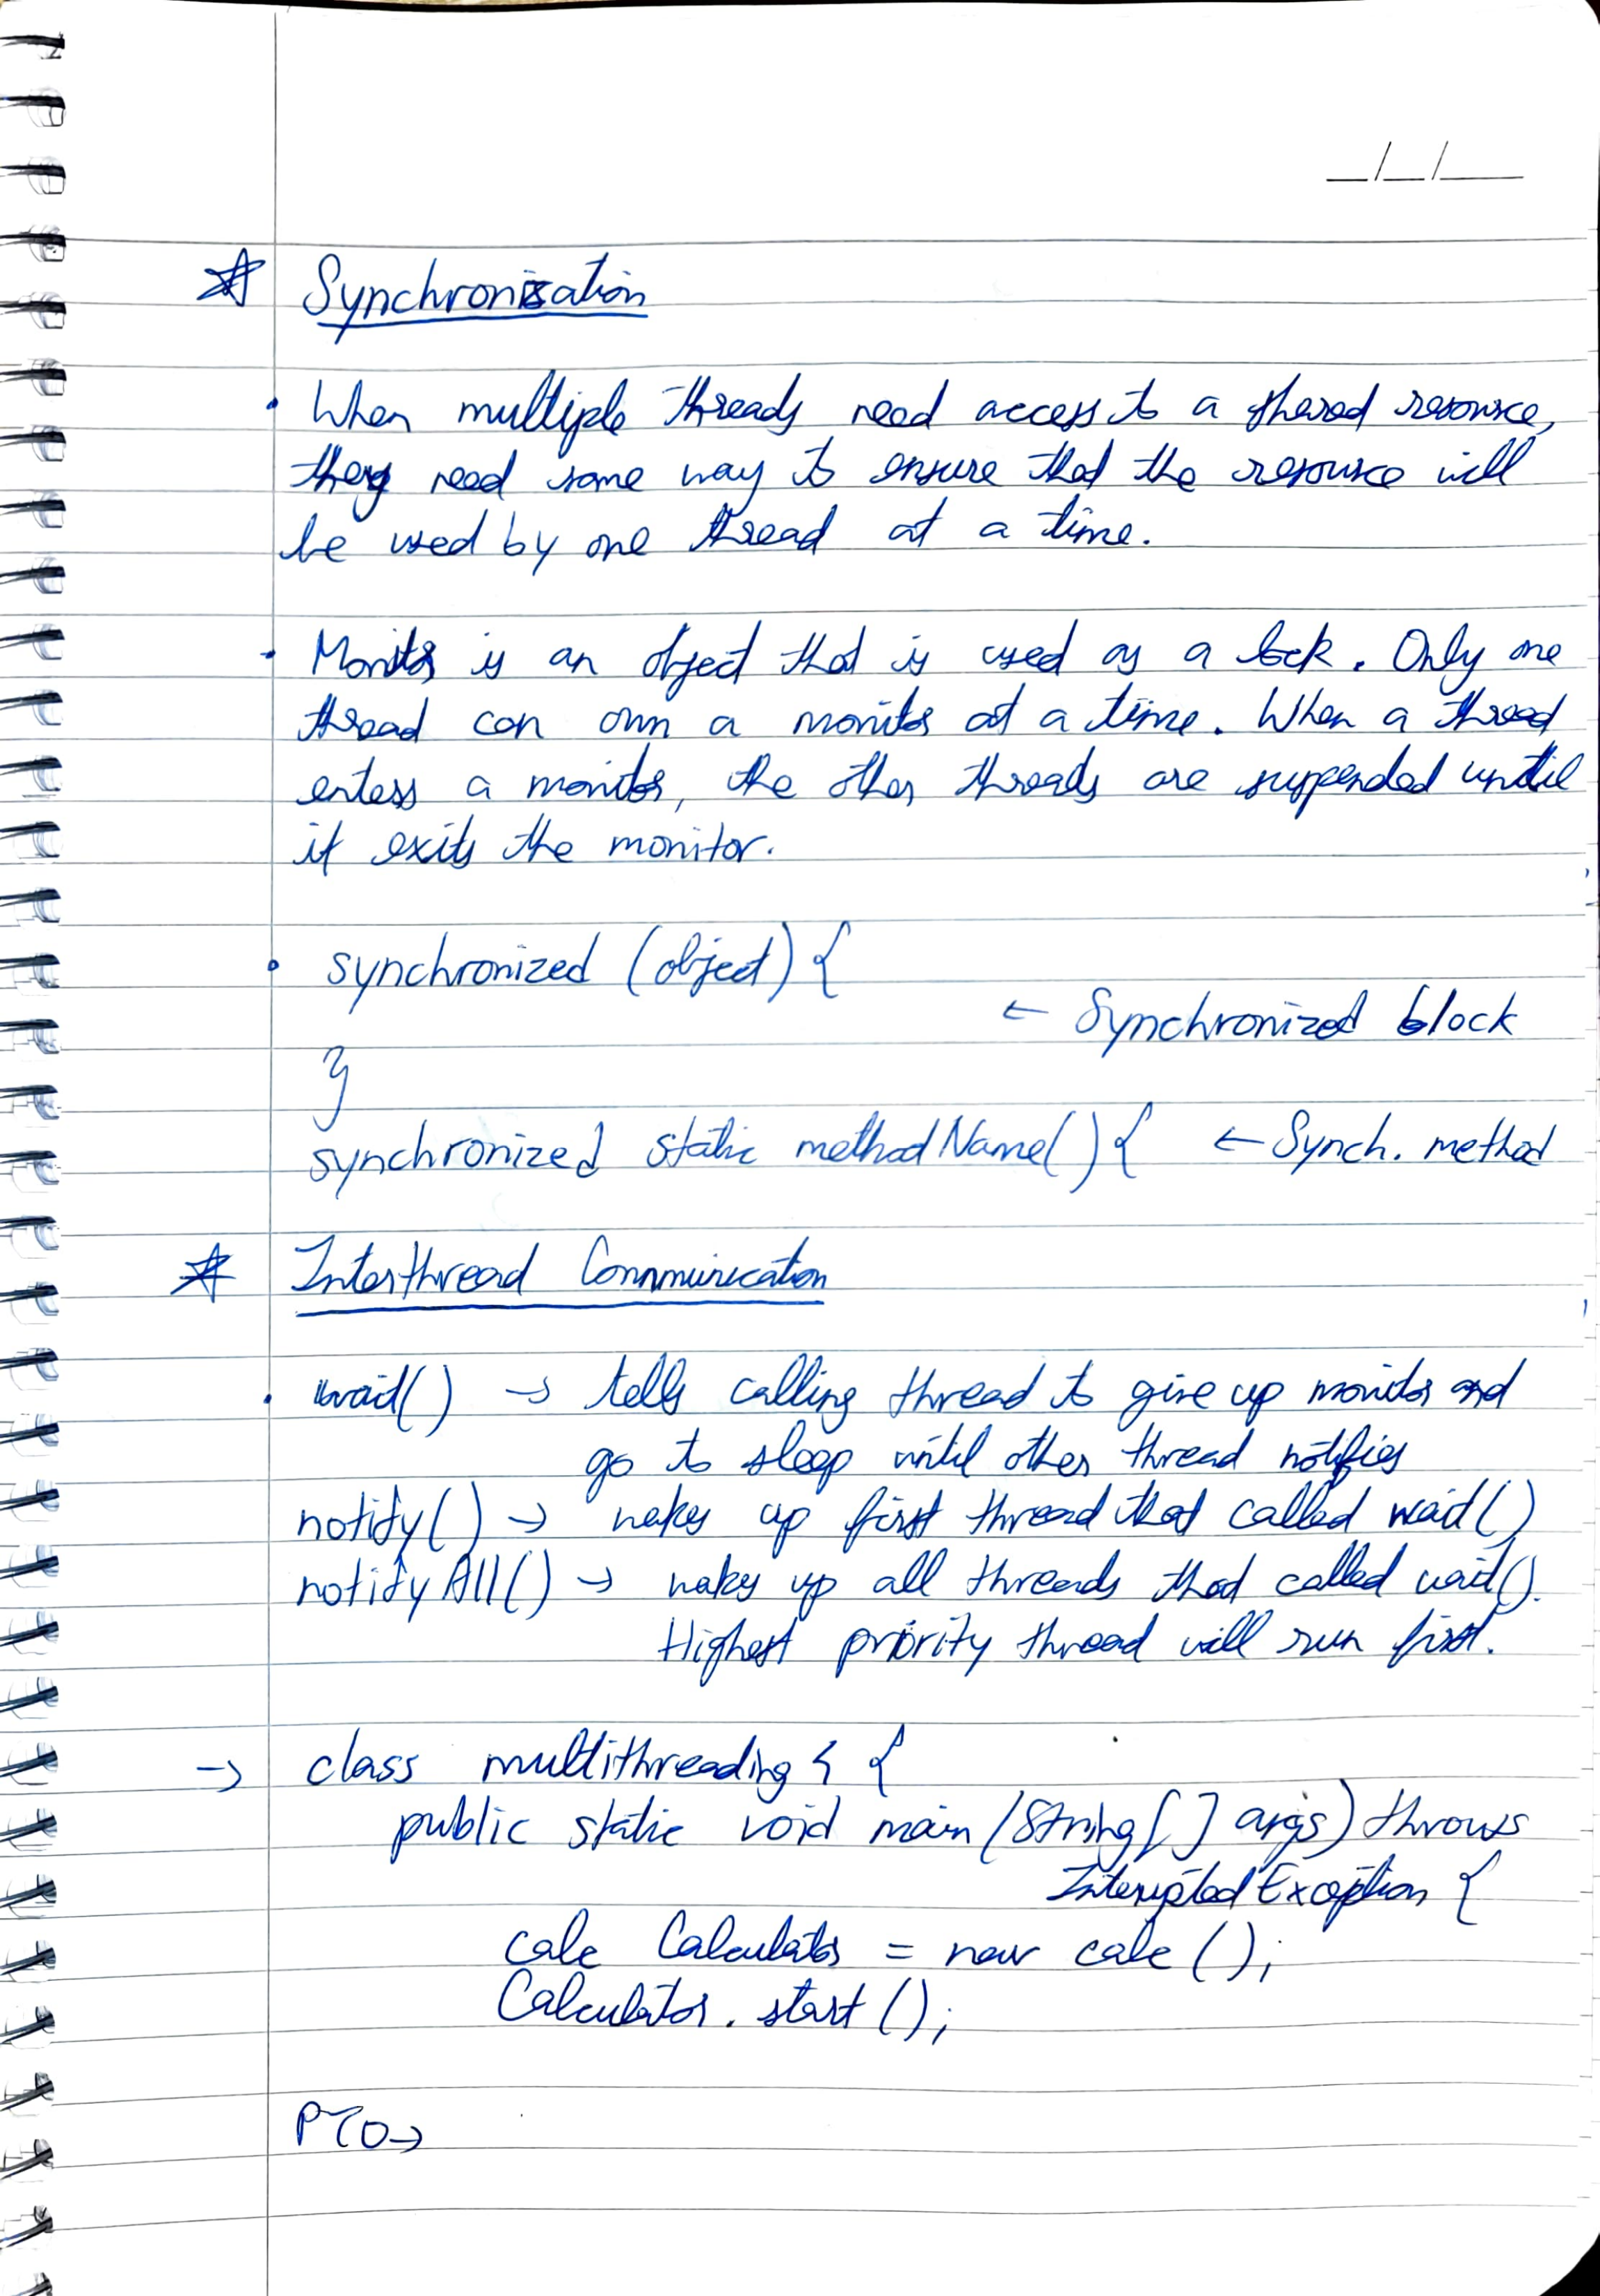 _/_/__
☆ Synchronisation
• When multiple threads need access to a shared resource,
they need some way to ensure that the resource will
be used by one thread at a time.
• Monitor is an object that is used as a lock. Only one
thread can own a monitor at a time. When a thread
enters a monitor, the other threads are suspended until
it exits the monitor.
• synchronized (object) {
← Synchronized block
}
synchronized static methodName() { ← Synch. method
☆ Interthread Communication
• wait() → tells calling thread to give up monitor and
go to sleep until other thread notifies
notify() → wakes up first thread that called wait()
notifyAll() → wakes up all threads that called wait().
Highest priority thread will run first.
→ class multithreading {
public static void main(String[] args) throws
InteruptedException {
calc Calculator = new calc();
Calculator.start();
PTO→